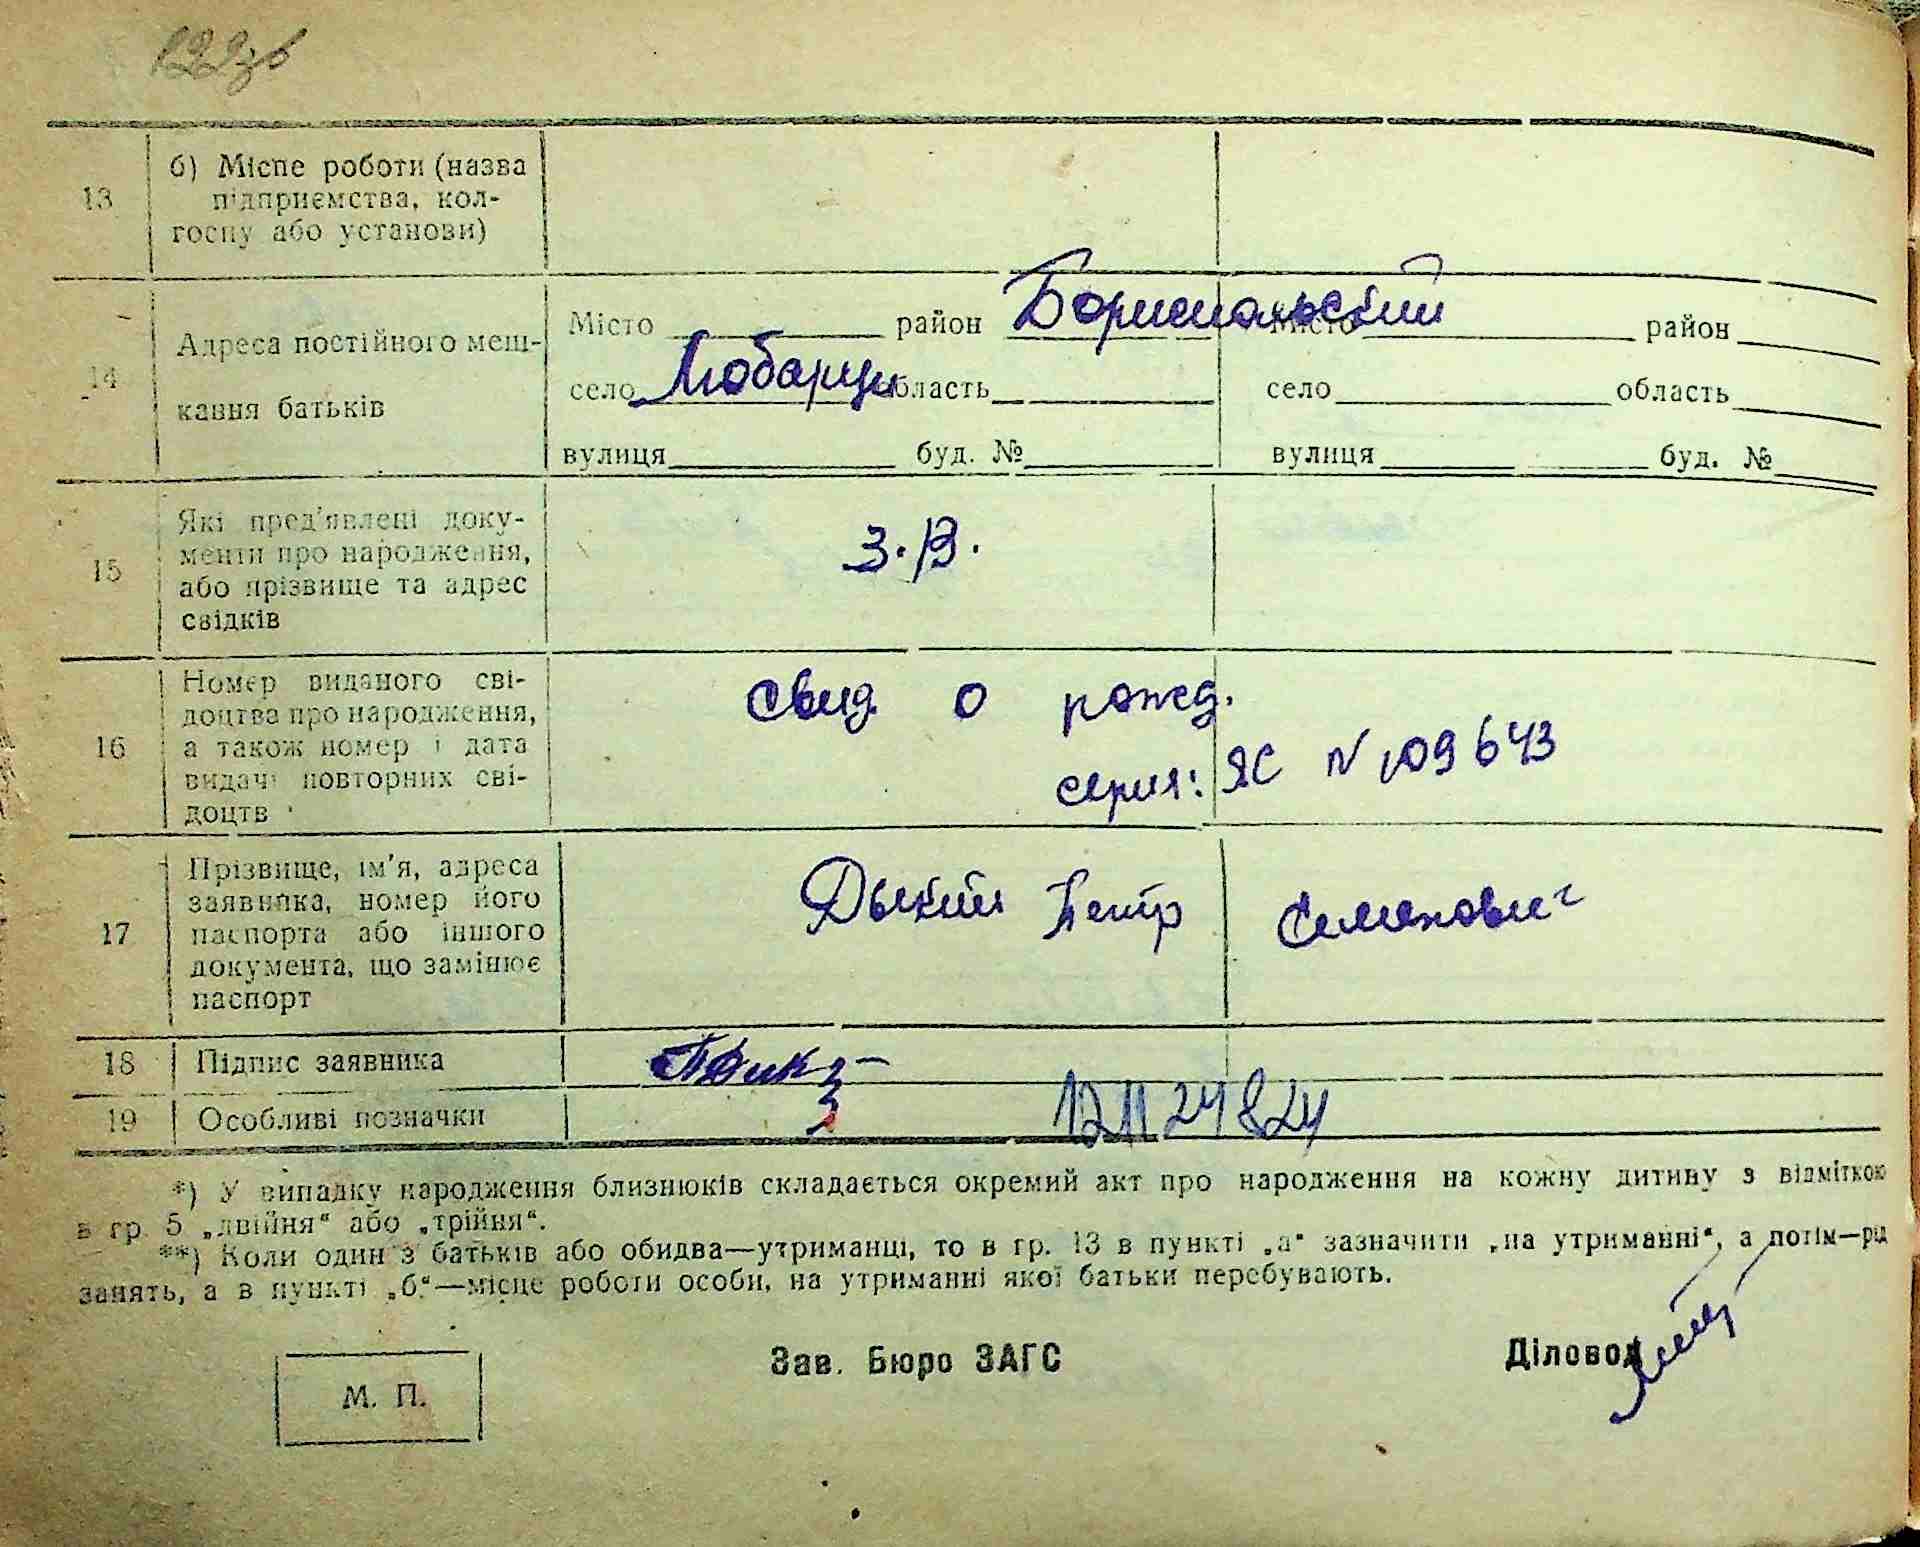 122зв
13 б) Місце роботи (назва
підприємства, кол-
госпу або установи)
14 Адреса постійного меш-
кання батьків
Місто район Бориспольский
село Любарцы область
вулиця буд. №
Місто район
село область
вулиця буд. №
15 Які пред'явлені доку-
менти про народження,
або прізвище та адрес
свідків
З. В.
16 Номер виданого сві-
доцтва про народження,
а також номер і дата
видачі повторних сві-
доцтв
Свид о рожд.
серия: ЯС N 109643
17 Прізвище, ім'я, адреса
заявника, номер його
паспорта або іншого
документа, що замінює
паспорт
Дыкий Петр Семенович
18 Підпис заявника
19 Особливі позначки
*) У випадку народження близнюків складається окремий акт про народження на кожну дитину з відміткою
в гр. 5 „двійня“ або „трійня“.
**) Коли один з батьків або обидва—утриманці, то в гр. 13 в пункті „а“ зазначити „на утриманні“, а потім—рід
занять, а в пункті „б“—місце роботи особи, на утриманні якої батьки перебувають.
М. П.
Зав. Бюро ЗАГС
Діловод